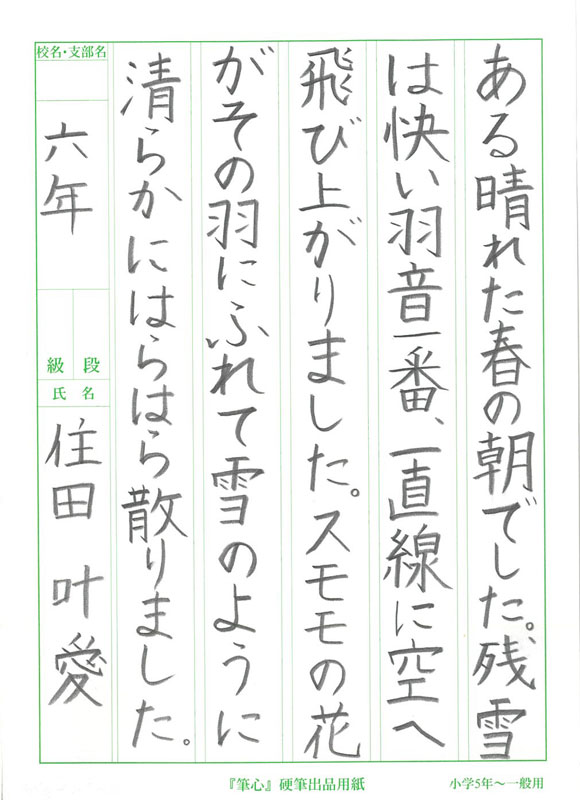 ある晴れた春の朝でした。残雪
は快い羽音一番、一直線に空へ
飛び上がりました。スモモの花
がその羽にふれて雪のように
清らかにはらはら散りました。
校名・支部名
六年
級 段
氏 名
住田 叶愛
『筆心』硬筆出品用紙
小学5年〜一般用